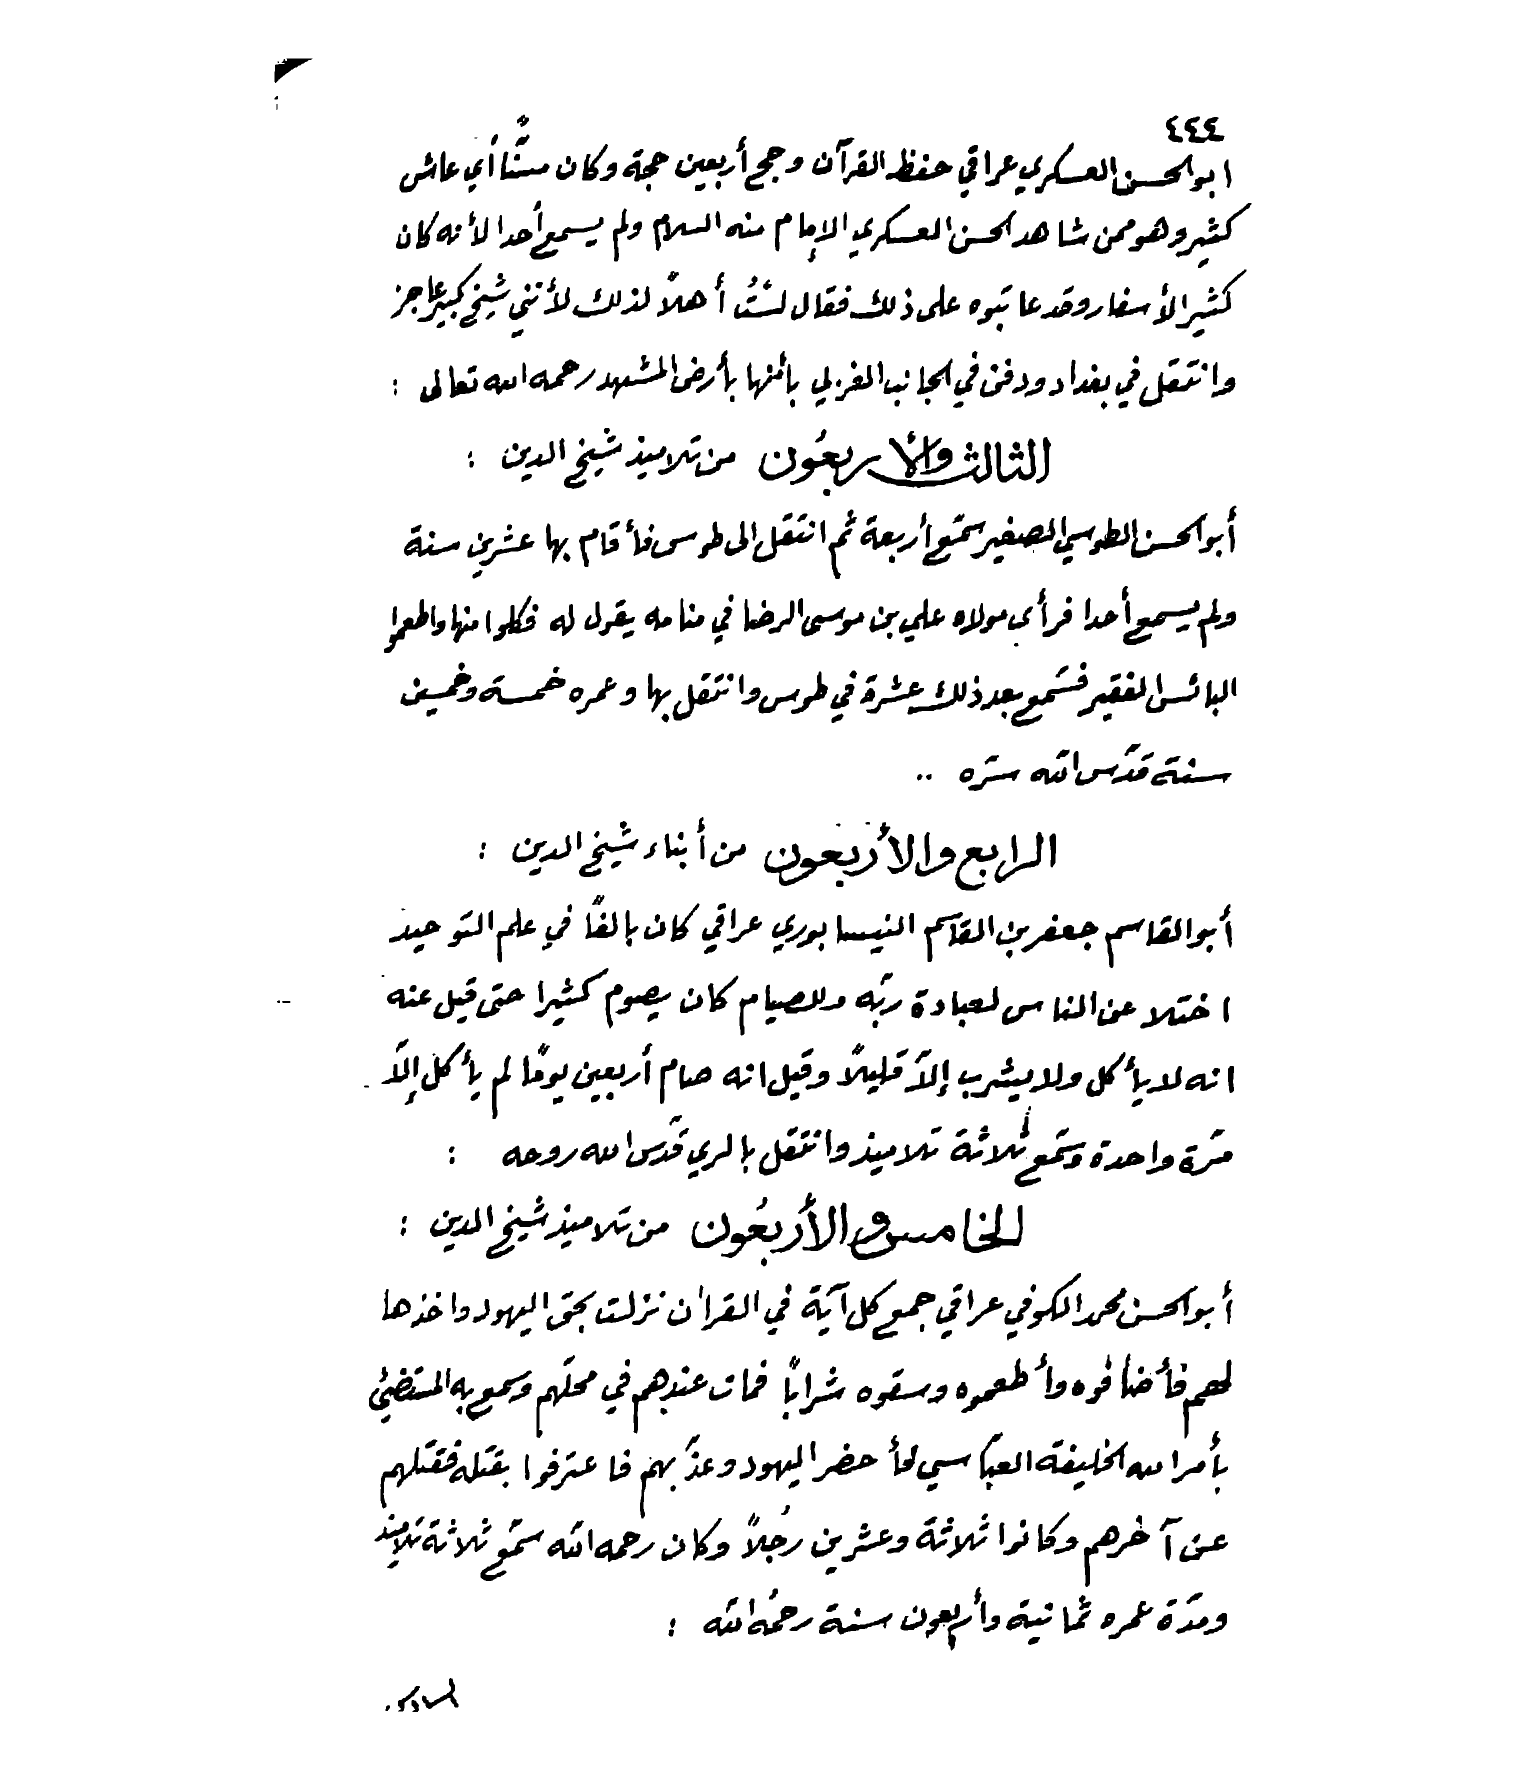 ٤٤٤
ابو الحسن العسكري عراقي حفظ القرآن وحج أربعين حجة وكان مسنًّا أي عاش
كثير وهو ممن شاهد الحسن العسكري الإمام منه السلام ولم يسمع أحدا لأنه كان
كثير الأسفار وقد عاتبوه على ذلك فقال لستُ أهلاً لذلك لأنني شيخ كبير عاجز
وانتقل في بغداد ودفن في الجانب الغربي بأرض المشهد رحمه الله تعالى :
الثالث والأربعُون من تلاميذ شيخ الدين :
أبو الحسن الطوسي الصغير سمّع أربعة ثم انتقل الى طوس فأقام بها عشرين سنة
ولم يسمع أحدا فرأى مولاه علي بن موسى الرضا في منامه يقول له فكلوا منها واطعموا
البائس الفقير فسَمع بعد ذلك عشرة في طوس وانتقل بها وعمره خمسة وخمسين
سنة قدّس الله سرّه ..
الرابع والأربعون من أبناء شيخ الدين :
أبو القاسم جعفر بن القاسم النيسابوري عراقي كان بالغًا في علم التوحيد
اختلا عن الناس لعبادة ربّه وللصيام كان يصوم كثيرا حتى قيل عنه
انه لا يأكل ولا يشرب إلاّ قليلاً وقيل انه صام أربعين يومًا لم يأكل إلاّ
مرّة واحدة وسمّع ثلاثة تلاميذ وانتقل بالري قدّس الله روحه :
الخامس والأربعُون من تلاميذ شيخ الدين :
أبو الحسن محمد الكوفي عراقي جمع كل آية في القرأن نزلت بحق اليهود واخذها
لهم فأضافوه وأطعموه وسقوه شرابًا فمات عندهم في محلّهم وسمع به المستضيئ
بأمر الله الخليفة العبّاسي فأحضر اليهود وعذّبهم فاعترفوا بقتله فقتلهم
عن آخرهم وكانوا ثلاثة وعشرين رجُلاً وكان رحمه الله سمّع ثلاثة تلاميذ
ومدّة عمره ثمانية وأربعون سنة رحمهُ الله :